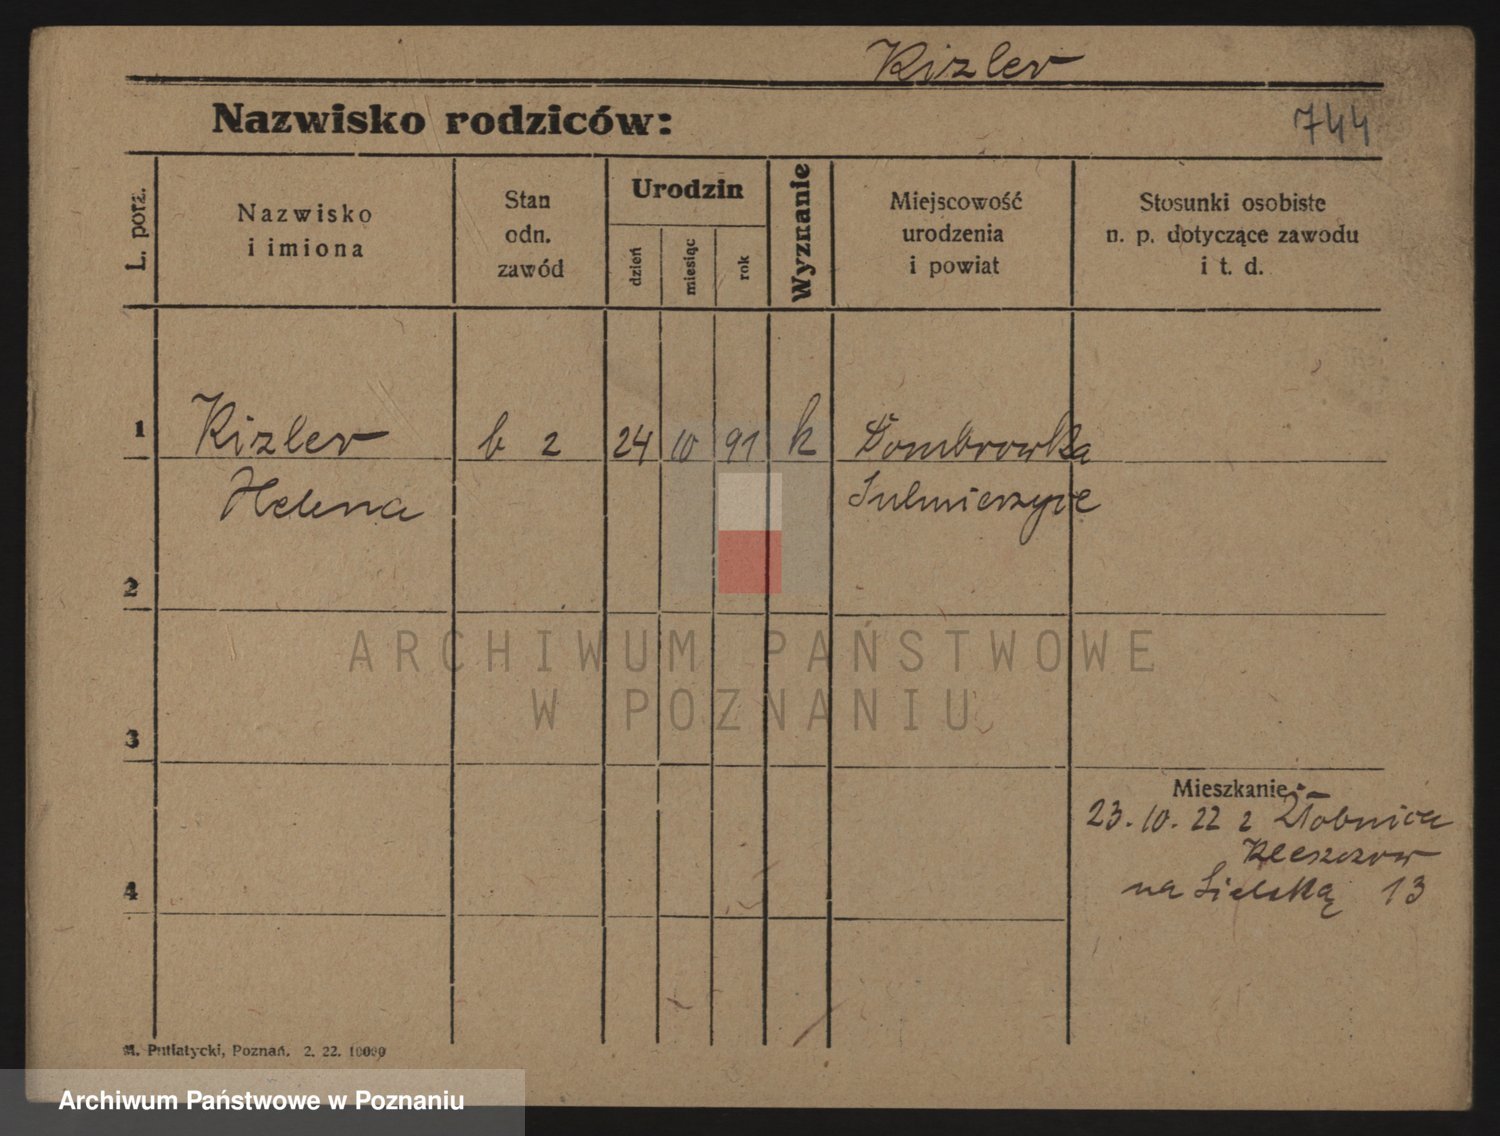 Kizler
Nazwisko rodziców:
744
L. porz.
Nazwisko
i imiona
Stan
odn.
zawód
Urodzin
dzień
miesiąc
rok
Wyznanie
Miejscowość
urodzenia
i powiat
Stosunki osobiste
n. p. dotyczące zawodu
i t. d.
1 Kizler b z 24 10 91 k Dombrowka
Helena Sulmierzyce
2
ARCHIWUM PAŃSTWOWE
W POZNANIU
3
Mieszkanie
23.10.22 z Złobnica
Kleszczow
4
na Sielską 13
M. Putiatycki, Poznań. 2. 22. 10000
Archiwum Państwowe w Poznaniu